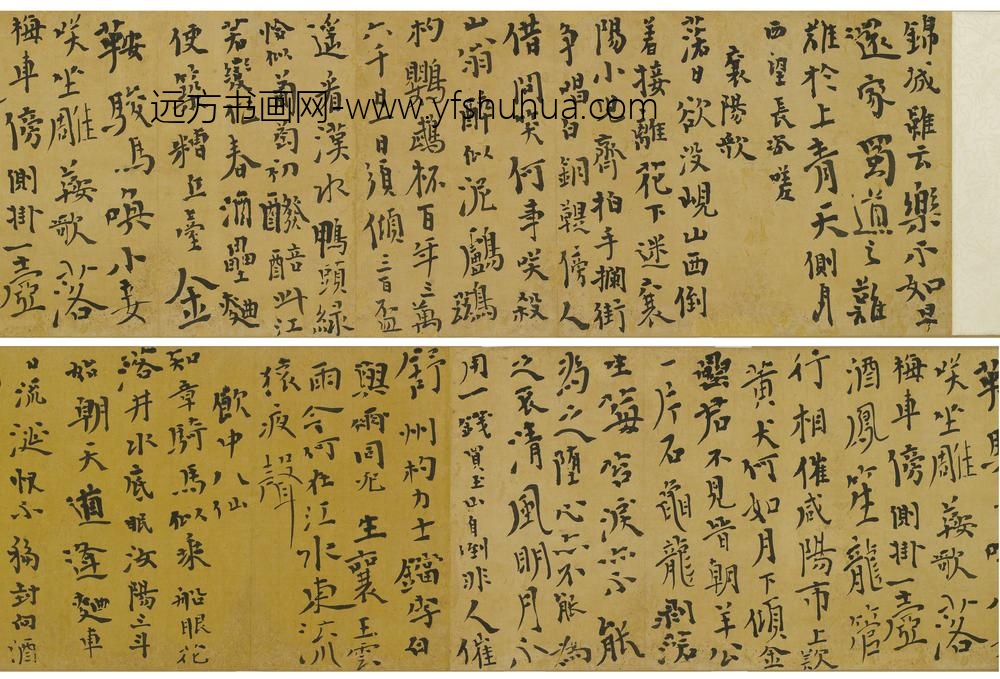 錦城雖云樂不如早
還家蜀道之難
難於上青天側身
西望長咨嗟
襄陽歌
落日欲没峴山西倒
着接離花下迷襄
陽小兒齊拍手攔街
争唱白銅鞮傍人
借問咲何事咲殺
山翁醉似泥鸕鷀
杓鸚鵡杯百年三萬
六千日日須傾三百盃
遥看漢水鴨頭緑
恰似萄萄初醱醅此江
若變作春酒壘麴
便築糟丘臺金
鞍駿馬喚小妾
咲坐雕鞍歌落
梅車傍側掛一壺
远方书画网-www.yfshuhua.com
咲坐雕鞍歌落
梅車傍側掛一壺
酒鳳笙龍管
行相催咸陽市上歎
黄犬何如月下傾金
罍君不見晉朝羊公
一片石龜龍剥落
生莓苔淚亦不能
為之墮心亦不能為
之哀清風明月不
用一錢買玉山自倒非人催
舒州杓力士鐺李白
與爾同死生襄王雲
雨今何在江水東流
猿夜聲
飲中八仙
知章騎馬似乘船眼花
落井水底眠汝陽三斗
始朝天道逢麴車
口流涎恨不移封向酒